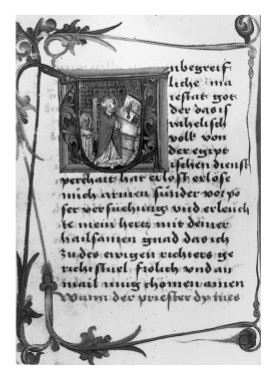 nbegreif
liche ma
iestat got
der das is
rahelisch
volk von
der egipt
ischen dienst
perchait hat erlost erlose
mich armen sunder vor po
ser versuchung vnd erleuch
te mein hertz mit deiner
hailsamen gnad das ich
zu des ewigen richters ge
richt stuel frolich vnd an
mail mug chomen amen
Wann der priester dy mes